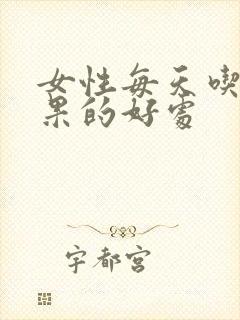 女性每天喫
果的好處
宇都宮